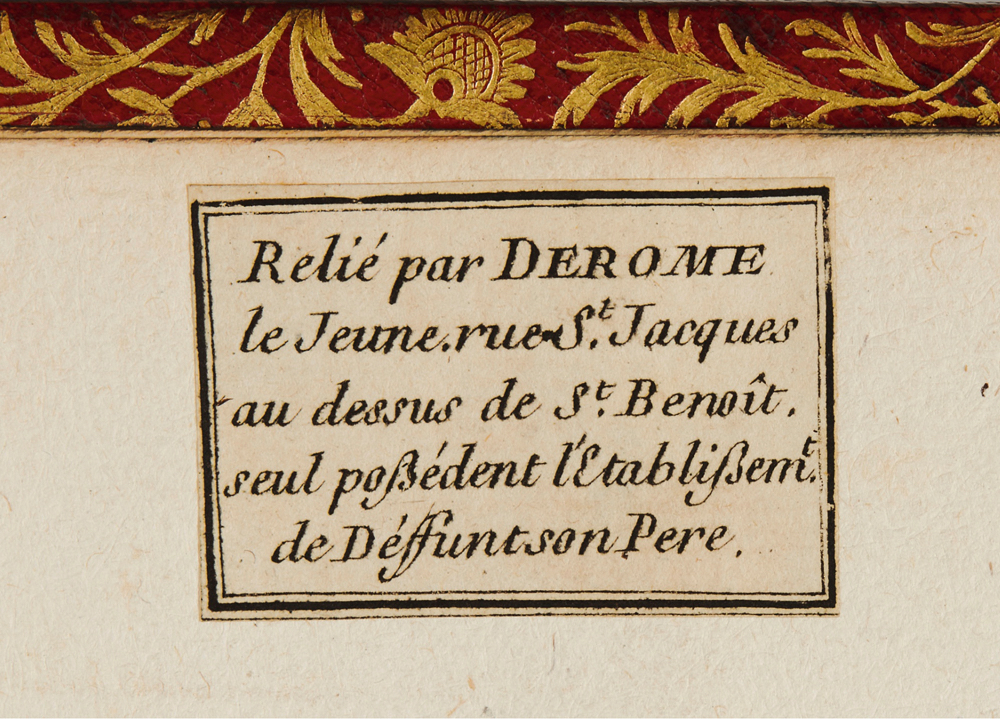 Relié par DEROME
le Jeune. rue St. Jacques
au dessus de St. Benoît.
seul poßédent l'Etablißemt.
de Déffunt son Pere.